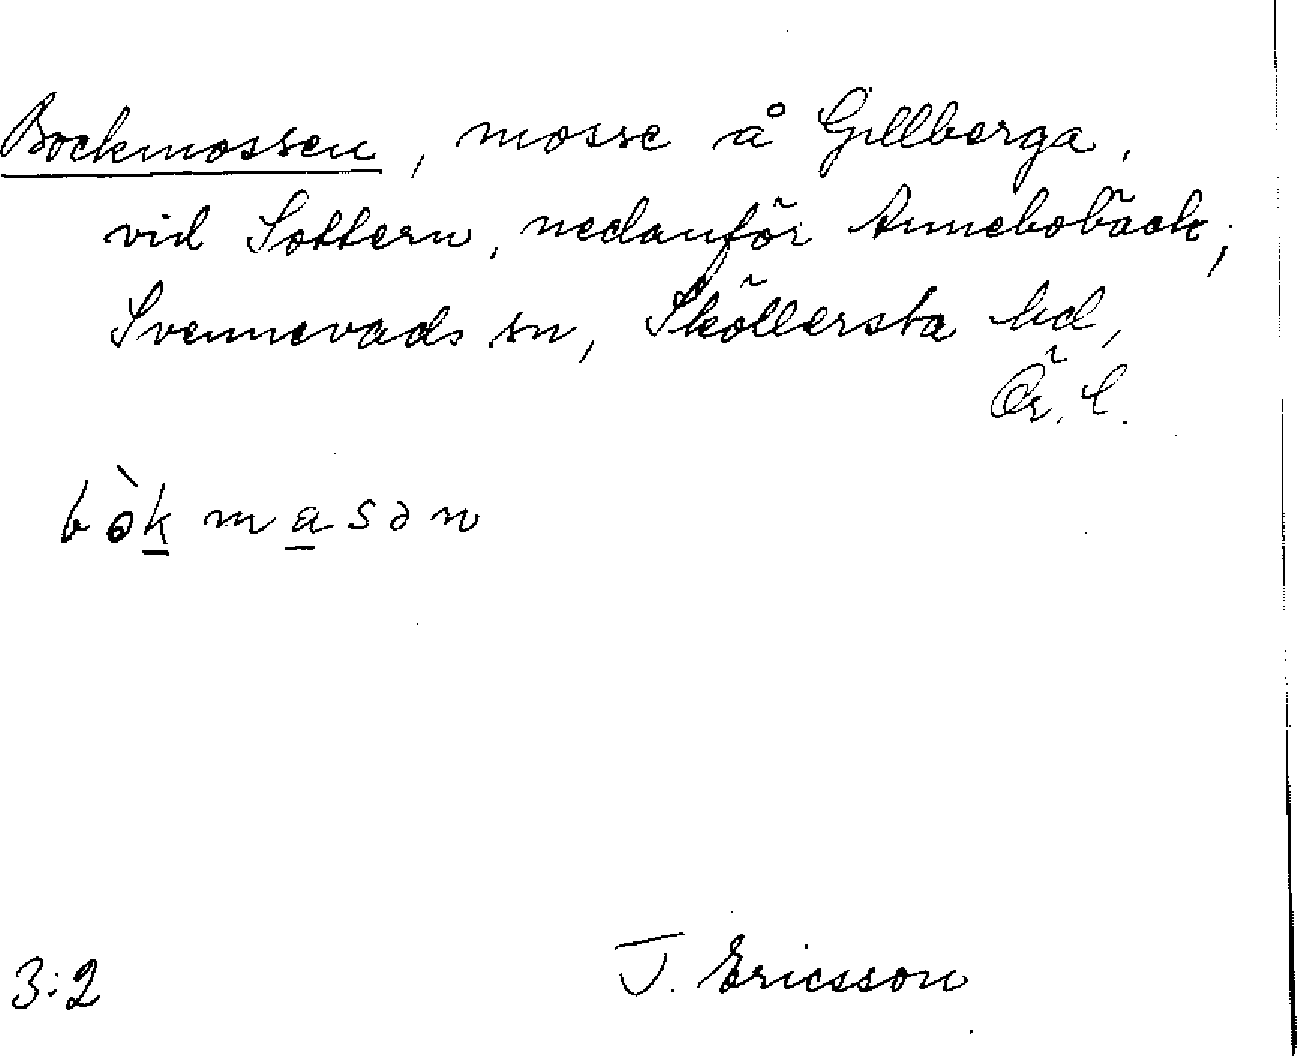 Bockmossen, mosse å Gillberga,
vid Sottern, nedanför Annebobäck;
Svennevads sn, Sköllersta hd,
Ör. l.
bòkmasən
3:2
J. Ericsson